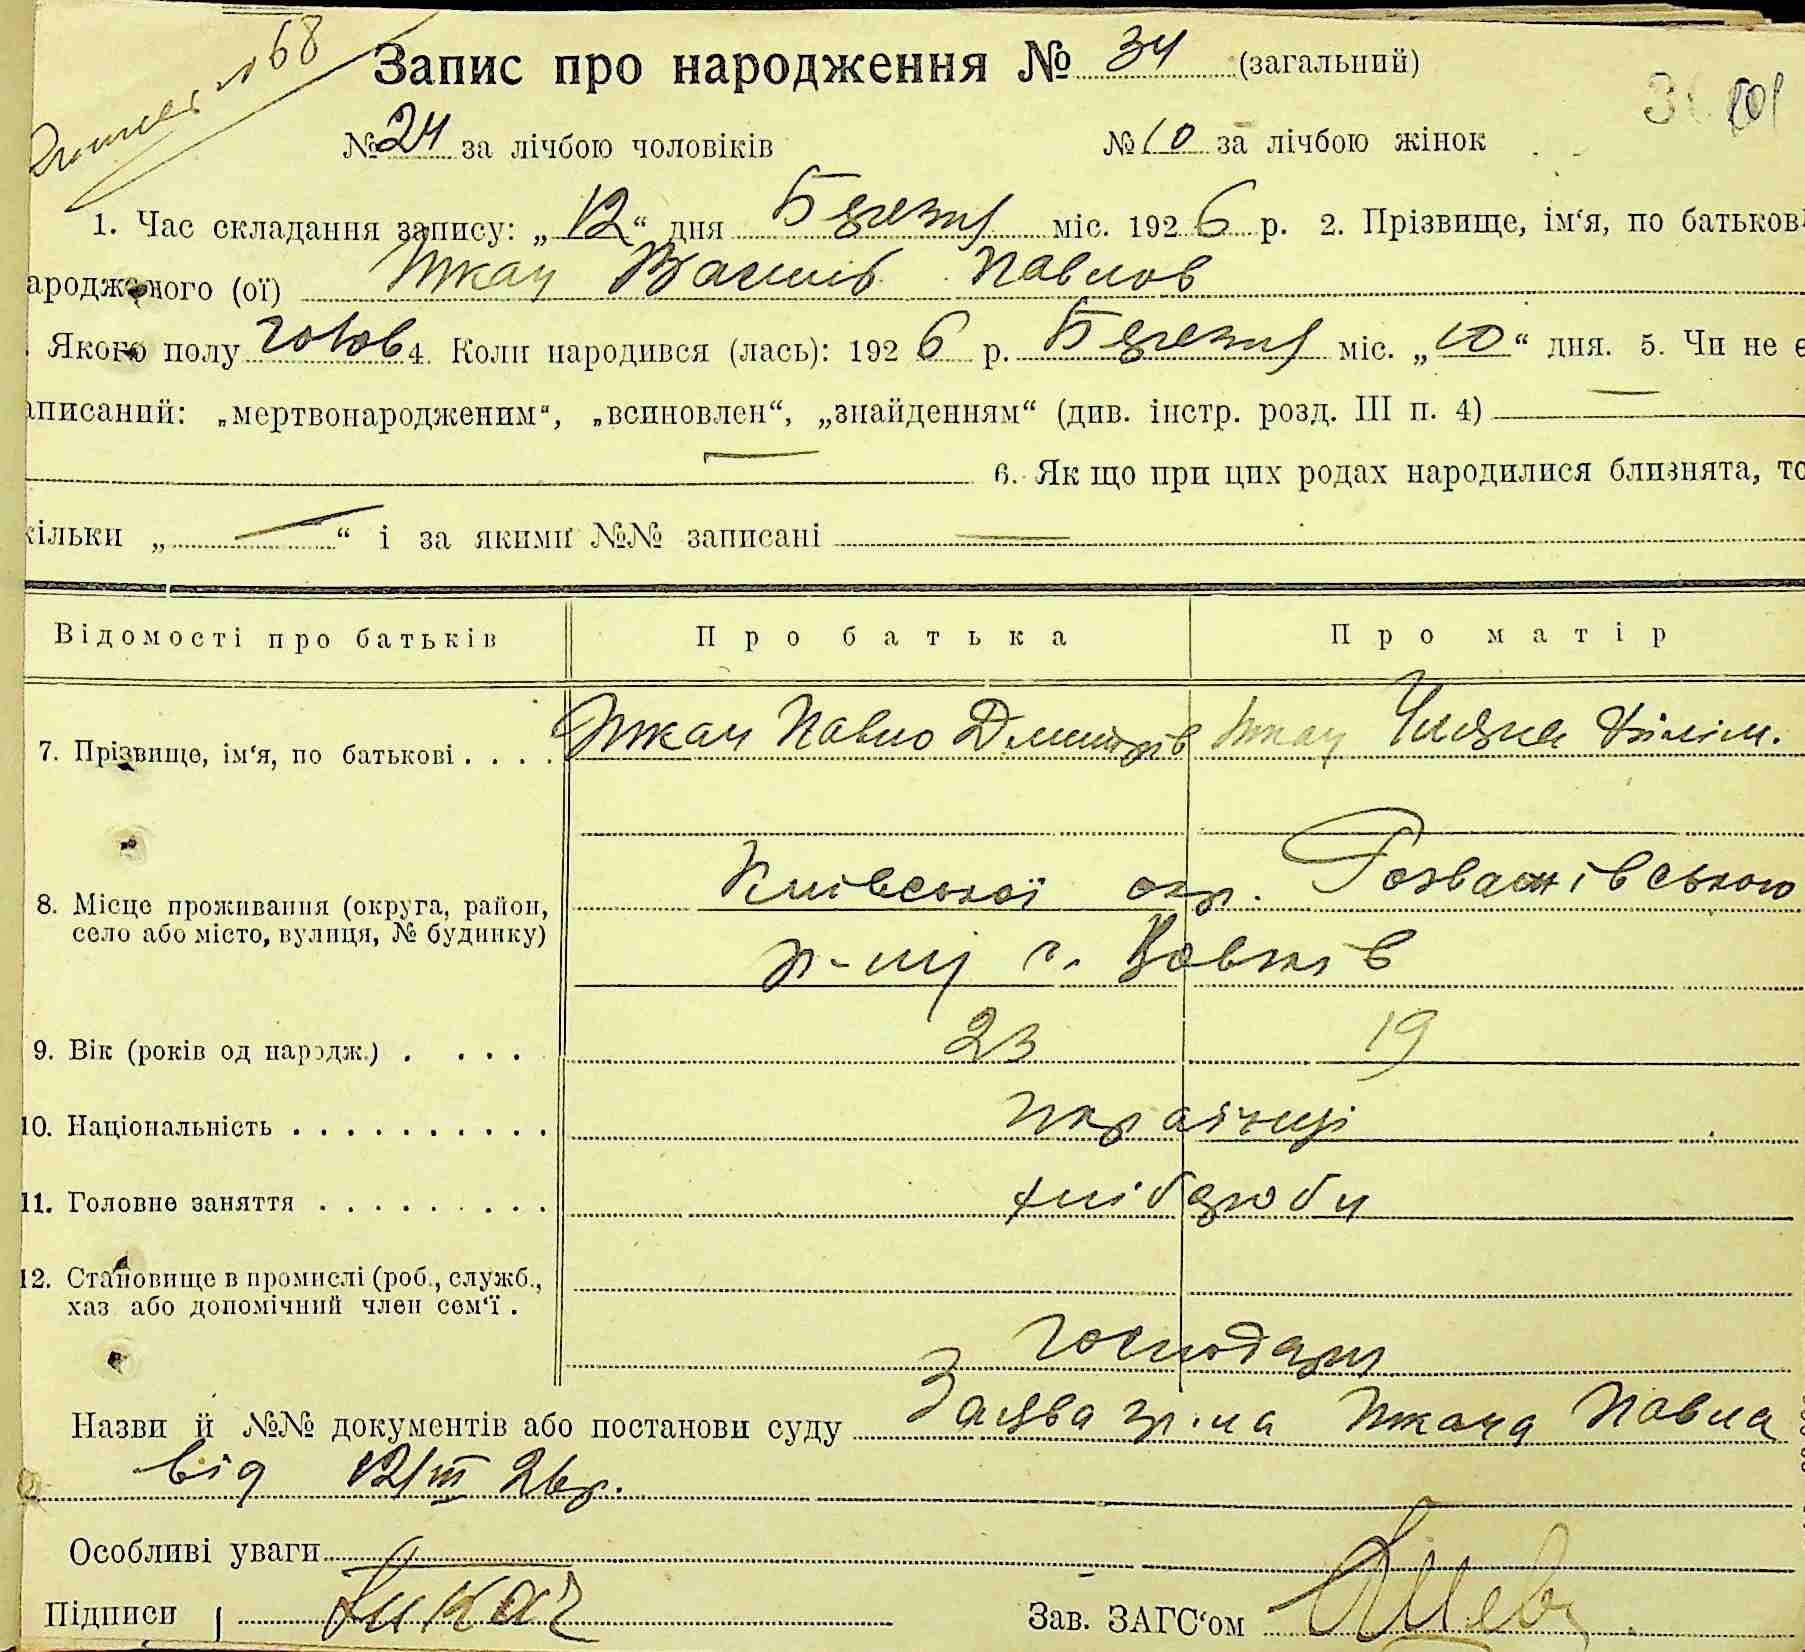 № 68
Запис про народження № 34 (загальний)
№ 24 за лічбою чоловіків № 10 за лічбою жінок
1. Час складання запису: „12“ дня Березня міс. 1926 р. 2. Прізвище, ім‘я, по батькові
ародженого (ої) Ткач Василь Павлов
Якого полу чолов 4. Коли народився (лась): 1926 р. Березня міс. „10“ дня. 5. Чи не є
аписаний: „мертвонародженим“, „всиновлен“, „знайденням“ (див. інстр. розд. III п. 4) —
— 6. Як що при цих родах народилися близнята, то
кільки „—“ і за якими №№ записані —
Відомості про батьків Про батька Про матір
7. Прізвище, ім‘я, по батькові . . . . Ткач Павло Дмитрів Ткач
Київської окр. Розважівського
8. Місце проживання (округа, район,
село або місто, вулиця, № будинку) р-ну с. Вовчків
9. Вік (років од народж.) . . . . 23 19
10. Національність . . . . . . . . . . українці
11. Головне заняття . . . . . . . . . хлібороби
12. Становище в промислі (роб., служб.,
хаз або допомічний член сем‘ї .
господарі
Назви й №№ документів або постанови суду Заява гр-на Ткача Павла
від 12/III 26р.
Особливі уваги
Підписи Ткач Зав. ЗАГС‘ом